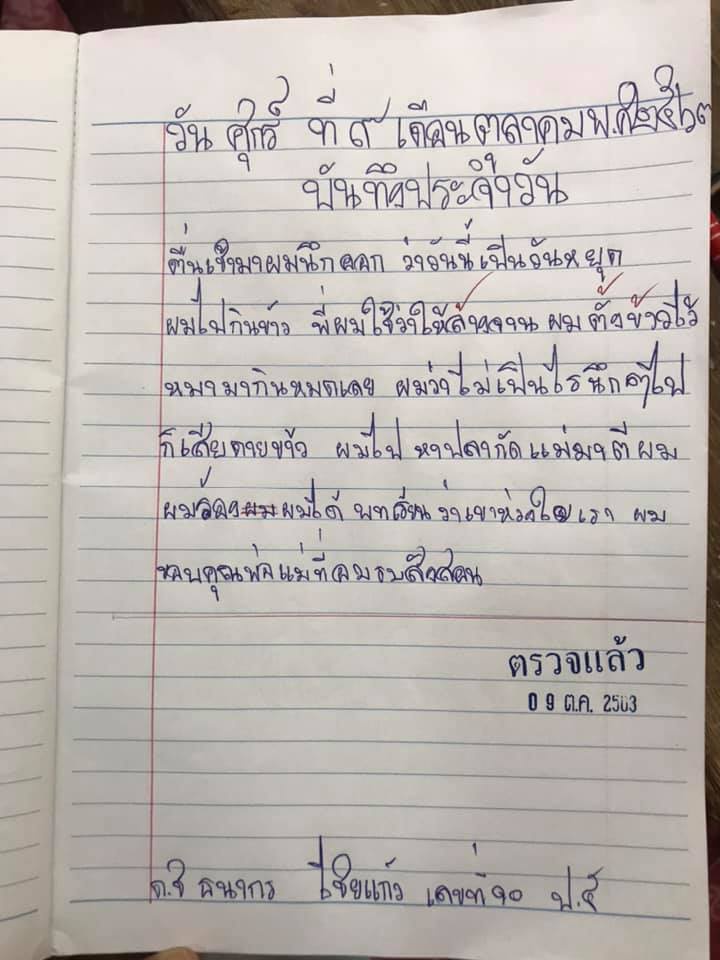 วัน ศุกร์ ที่ ๙ เดือน ตลาคม พ.ศ ๒๕๖๓
บันทึงประจำวัน
ตื่นเช้ามาผมนึกออก ว่าวันนี้เป็นวันหยุด
ผมไปกินข้าว พี่ผมใช้ว่าให้ล้างจาน ผม ตั้งข้าวไว้
หมามากินหมดเลย ผมว่าไม่เป็นไรนึกๆไป
ก็เสียดายข้าว ผมไป หาปลากัด แม่มาตี ผม
ผมร้อง ผม ผมได้ บทเรียน ว่าเขาห่วงใย เรา ผม
ขอบคุณพ่อแม่ที่อบรบสั่งสอน
ตรวจแล้ว
0 9 ต.ค. 2563
ด.ช ธนากร ไชยแก้ว เลขที่ ๑๐ ป.๕